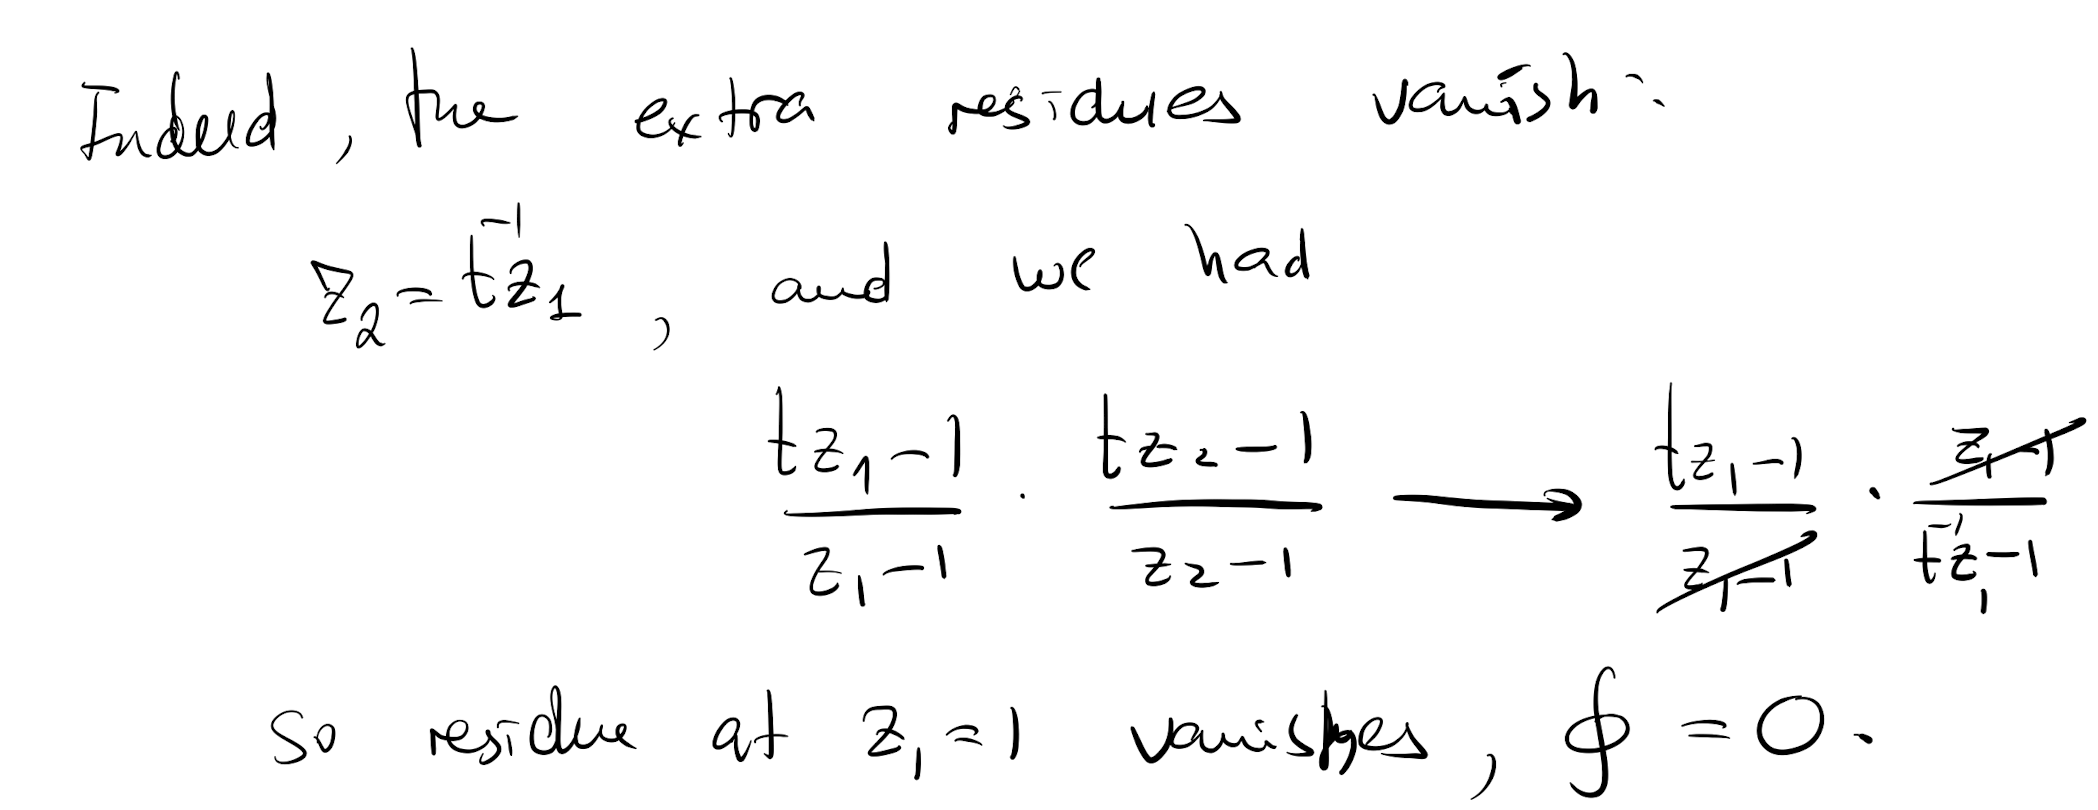 Indeed, the extra residues vanish:
z₂ = t⁻¹z₁, and we had
\frac{tz₁-1}{z₁-1} · \frac{tz₂-1}{z₂-1} ⟶ \frac{tz₁-1}{z₁-1} · \frac{z₁-1}{t⁻¹z₁-1}
so residue at z₁=1 vanishes, ∮ = 0.